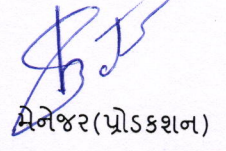 મેનેજર(પ્રોડકશન)